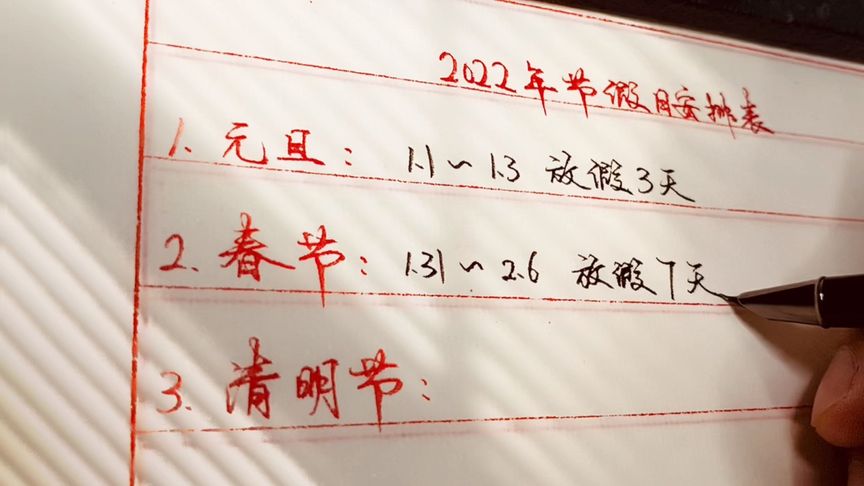 2022年节假日安排表
1. 元旦： 1.1～1.3 放假3天
2. 春节： 1.31～2.6 放假7天
3. 清明节：